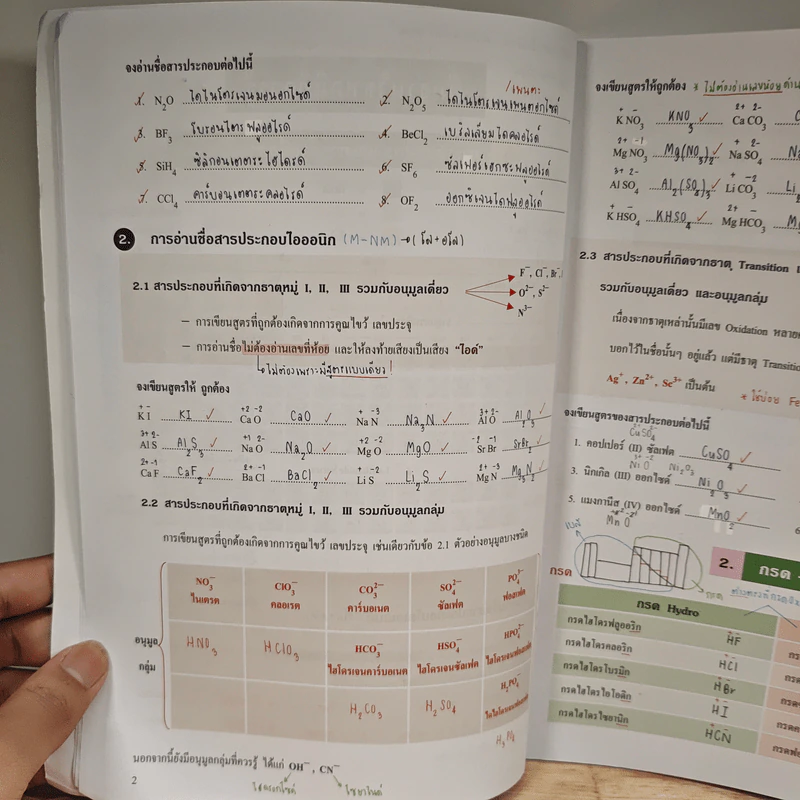 จงอ่านชื่อสารประกอบต่อไปนี้
1. N₂O ไดไนโตรเจนมอนอกไซด์
/เพนตะ
2. N₂O₅ ไดไนโตรเจนเพนตอกไซด์
3. BF₃ โบรอนไตรฟลูออไรด์
4. BeCl₂ เบริลเลียมไดคลอไรด์
5. SiH₄ ซิลิกอนเตตระไฮไดรด์
6. SF₆ ซัลเฟอร์เฮกซะฟลูออไรด์
7. CCl₄ คาร์บอนเตตระคลอไรด์
8. OF₂ ออกซิเจนไดฟลูออไรด์
2. การอ่านชื่อสารประกอบไอออนิก (M-NM) → (โล+อโล)
2.1 สารประกอบที่เกิดจากธาตุหมู่ I, II, III รวมกับอนุมูลเดี่ยว
F⁻, Cl⁻, Br⁻
O²⁻, S²⁻
N³⁻
– การเขียนสูตรที่ถูกต้องเกิดจากการคูณไขว้ เลขประจุ
– การอ่านชื่อไม่ต้องอ่านเลขที่ห้อย และให้ลงท้ายเสียงเป็นเสียง "ไอด์"
ไม่ต้องเพราะมีสูตรแบบเดียว!
จงเขียนสูตรให้ ถูกต้อง
K I KI ✓ Ca O CaO ✓ Na N Na₃N ✓ Al O Al₂O₃ ✓
Al S Al₂S₃ ✓ Na O Na₂O ✓ Mg O MgO ✓ Sr Br SrBr₂ ✓
Ca F CaF₂ ✓ Ba Cl BaCl₂ ✓ Li S Li₂S ✓ Mg N Mg₃N₂ ✓
2.2 สารประกอบที่เกิดจากธาตุหมู่ I, II, III รวมกับอนุมูลกลุ่ม
การเขียนสูตรที่ถูกต้องเกิดจากการคูณไขว้ เลขประจุ เช่นเดียวกับข้อ 2.1 ตัวอย่างอนุมูลบางชนิด
อนุมูล
กลุ่ม
NO₃⁻ ClO₃⁻ CO₃²⁻ SO₄²⁻ PO₄³⁻
ไนเตรต คลอเรต คาร์บอเนต ซัลเฟต ฟอสเฟต
HNO₃ HClO₃ HCO₃⁻ HSO₄⁻ HPO₄²⁻
ไฮโดรเจนคาร์บอเนต ไฮโดรเจนซัลเฟต ไฮโดรเจนฟอสเฟต
H₂CO₃ H₂SO₄ H₂PO₄⁻
นอกจากนี้ยังมีอนุมูลกลุ่มที่ควรรู้ ได้แก่ OH⁻, CN⁻
ไฮดรอกไซด์ ไซยาไนด์
2
จงเขียนสูตรให้ถูกต้อง * ไม่ต้องอ่านเลขห้อย
K NO₃ KNO₃ ✓ Ca CO₃
Mg NO₃ Mg(NO₃)₂ ✓ Na SO₄
Al SO₄ Al₂(SO₄)₃ ✓ Li CO₃
K HSO₄ KHSO₄ ✓ Mg HCO₃
2.3 สารประกอบที่เกิดจากธาตุ Transition
รวมกับอนุมูลเดี่ยว และอนุมูลกลุ่ม
เนื่องจากธาตุเหล่านั้นมีเลข Oxidation
บอกไว้ในชื่อนั้นๆ อยู่แล้ว แต่มีธาตุ
Ag⁺, Zn²⁺, Sc³⁺ เป็นต้น
จงเขียนสูตรของสารประกอบต่อไปนี้
CuSO₄
1. คอปเปอร์ (II) ซัลเฟต CuSO₄ ✓
Ni O Ni₂O₃
3. นิกเกิล (III) ออกไซด์ Ni₂O₃ ✓
5. แมงกานีส (IV) ออกไซด์ MnO₂ ✓
Mn O
กรด
เบส
2. กรด
กรด Hydro
กรดไฮโดรฟลูออริก HF
กรดไฮโดรคลอริก HCl
กรดไฮโดรโบรมิก HBr
กรดไฮโดรไอโอดิก HI
กรดไฮโดรไซยานิก HCN